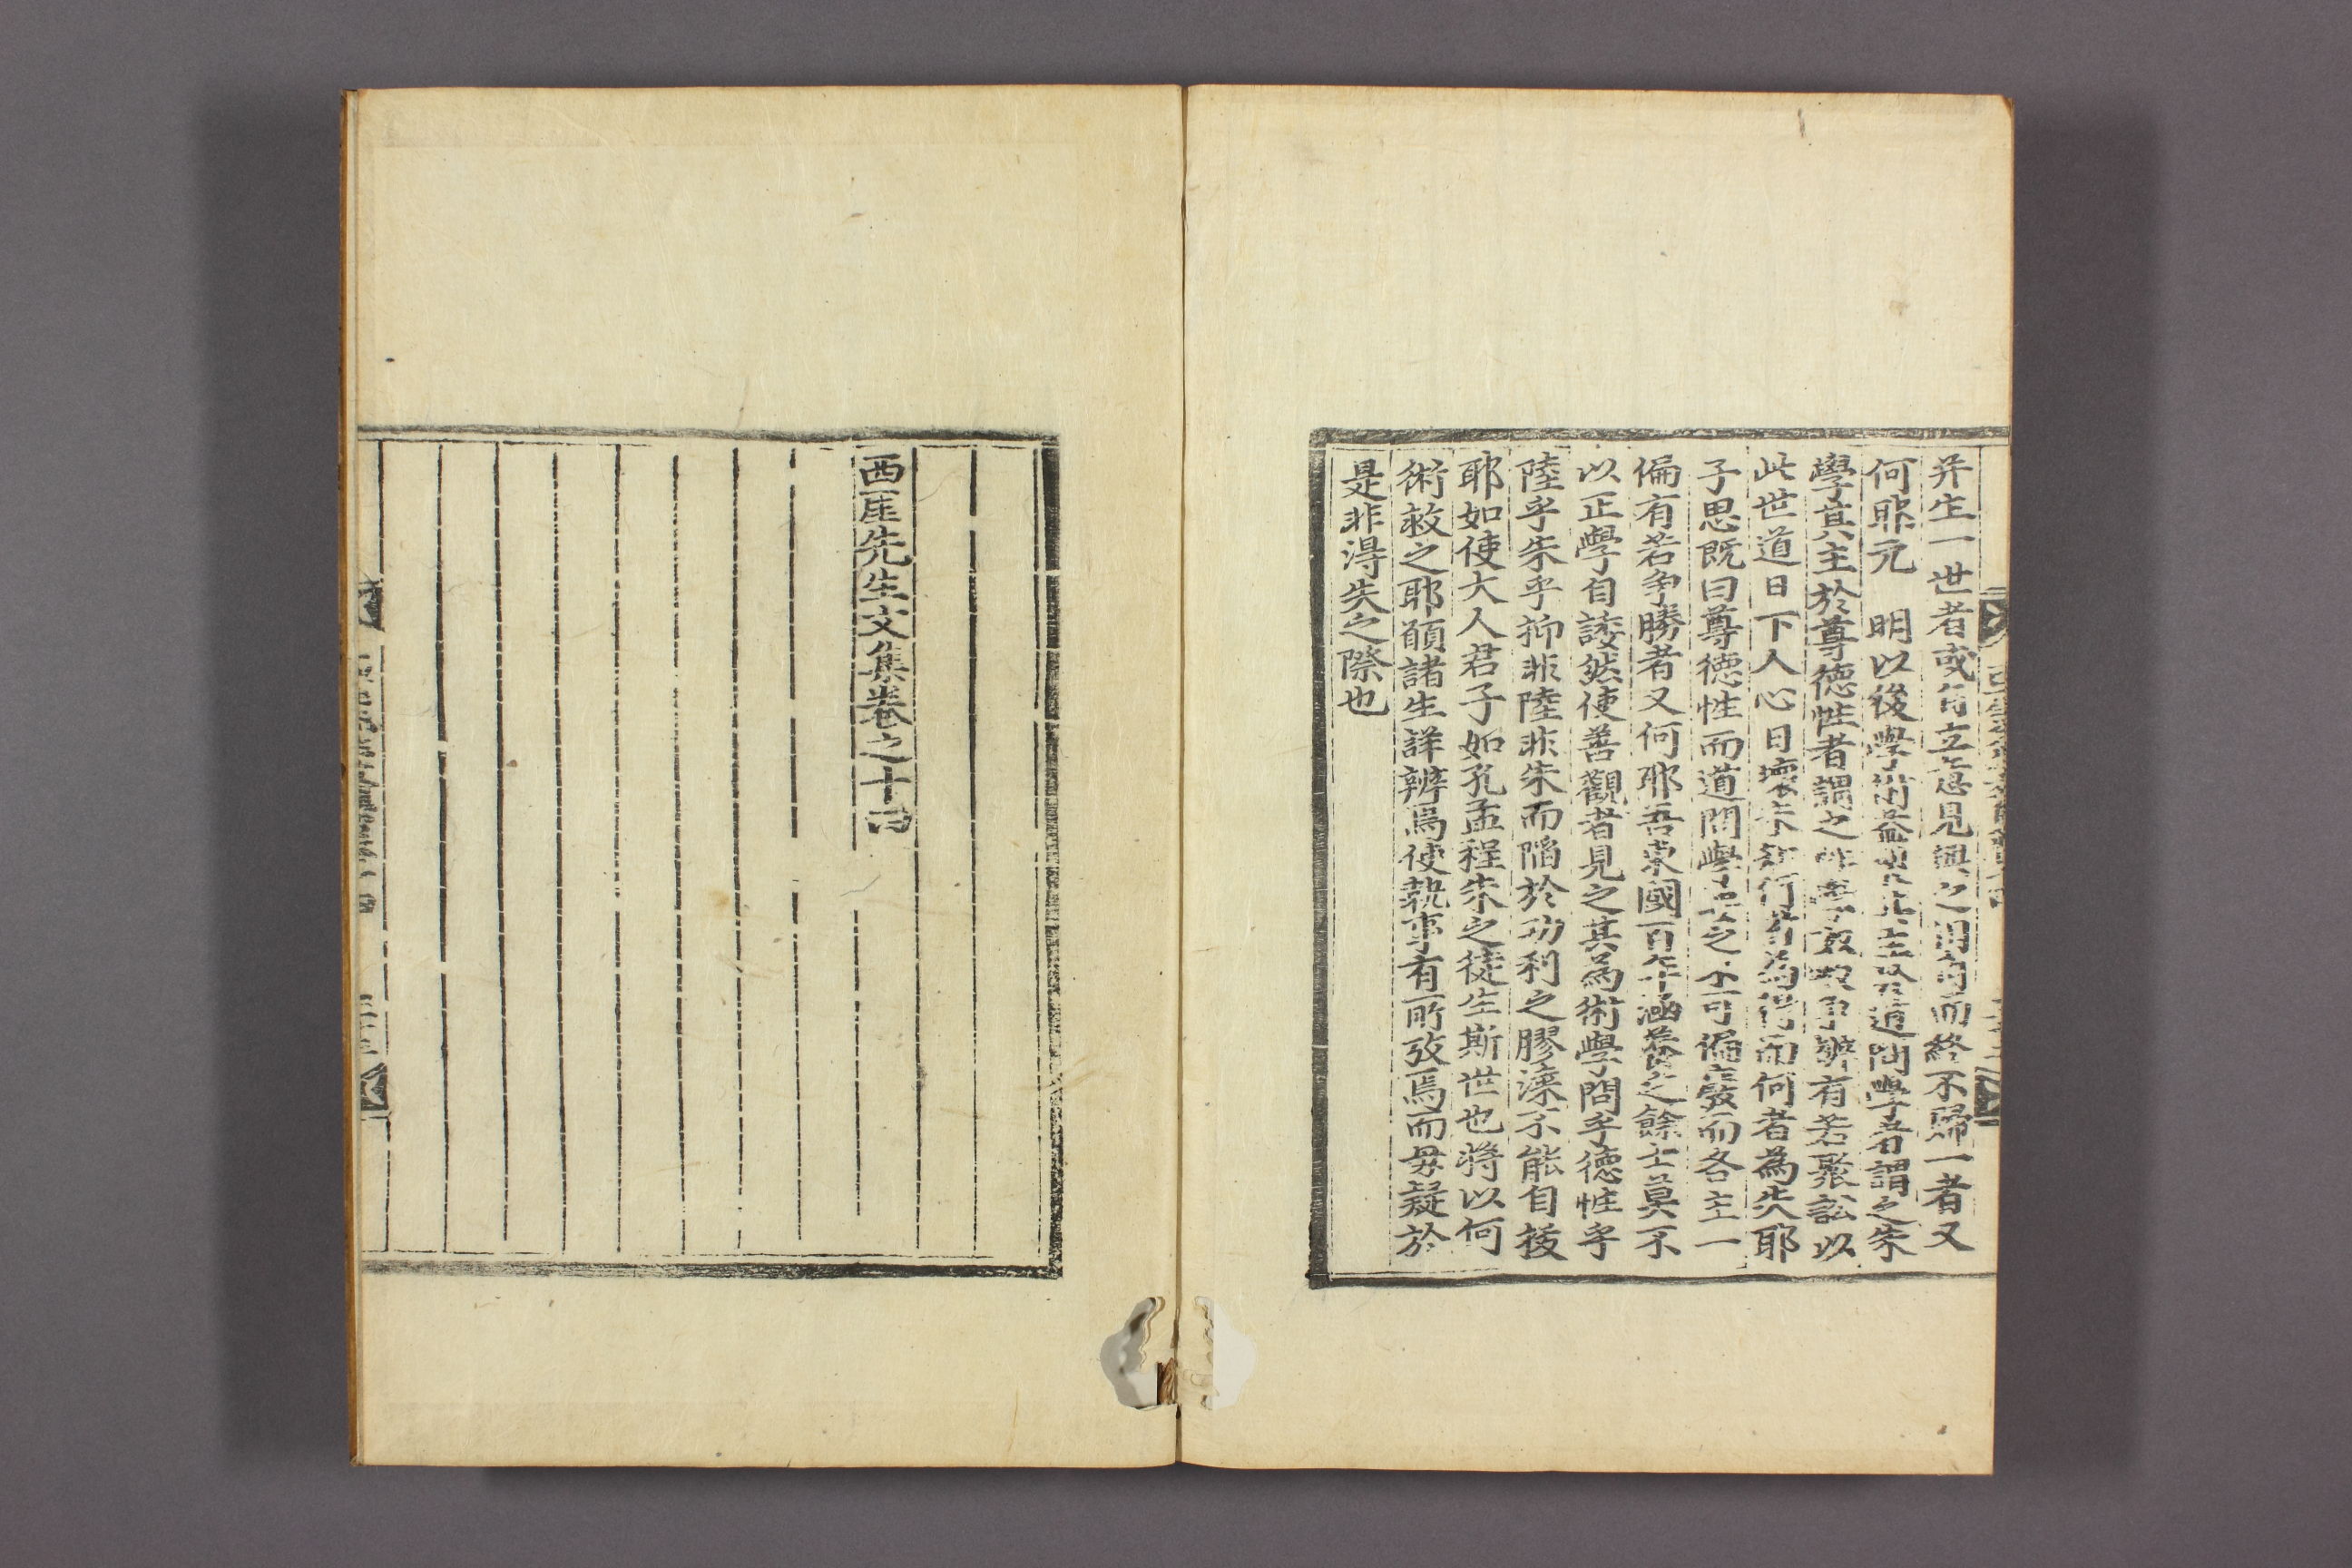 并生一世者或各立意見與之間而終不歸一者又
何耶元 明以後學術益其主於道問學者謂之朱
學其主於尊德性者謂之陸學紛爭辨有若聚訟以
此世道日下人心日壞未知何者為得而何者為失耶
子思旣曰尊德性而道問學之不可偏廢而各主一
偏有若爭勝者又何耶吾東國百年涵養之餘士莫不
以正學自諉然使善觀者見之其為術學問乎德性乎
陸乎朱乎抑非陸非朱而陷於功利之膠漆不能自拔
耶如使大人君子如孔孟程朱之徒生斯世也將以何
術救之耶願諸生詳辨焉使執事有所攷焉而毋疑於
是非得失之際也
西厓先生文集卷之十四